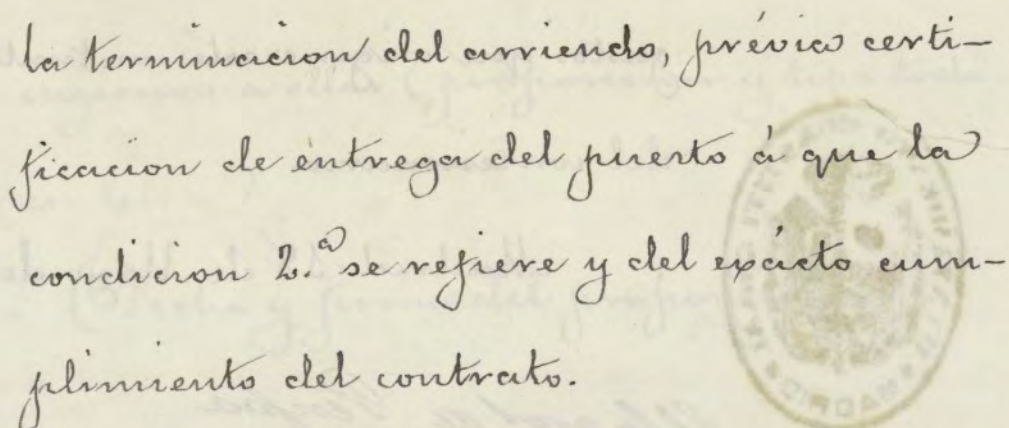 la terminacion del arriendo, prévia certi-
ficacion de entrega del puesto á que la
condicion 2.ª se refiere y del exácto cum-
plimiento del contrato.